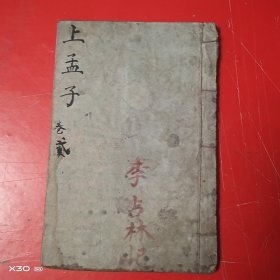 上孟子
卷貳
李占林記
X30